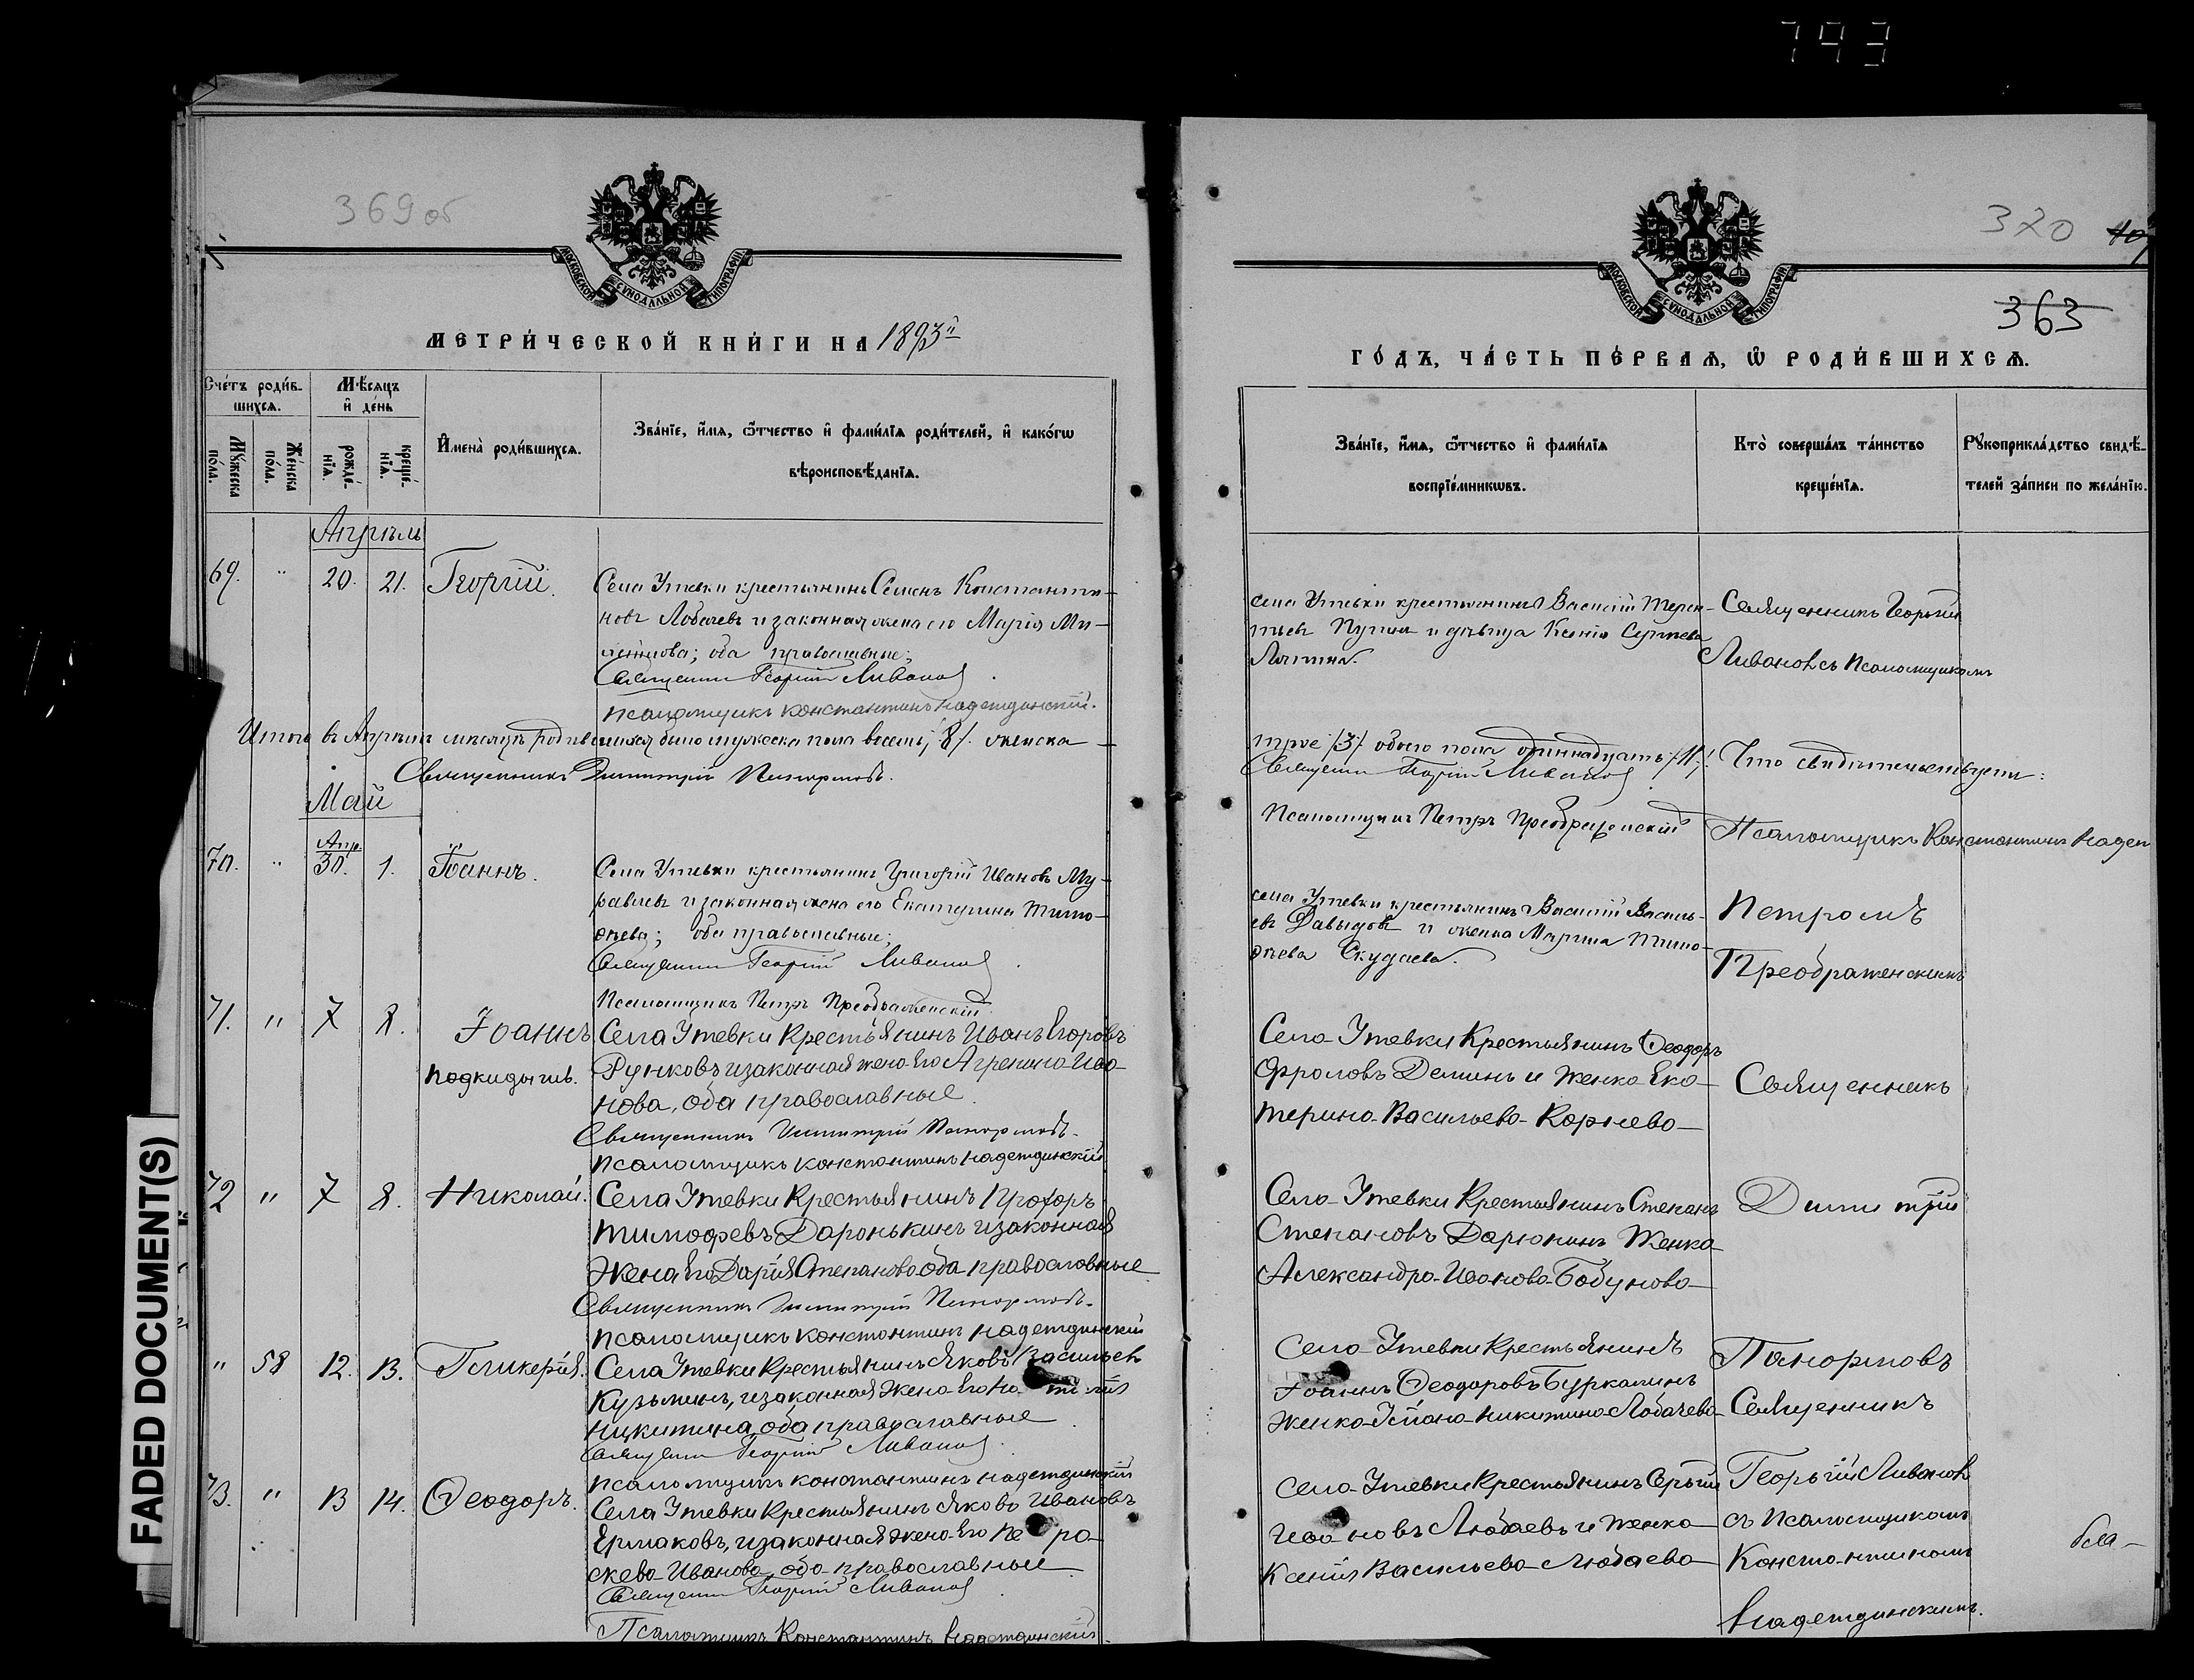 793
369 об
МОСКОВСКОЙ СУНОДАЛЬНОЙ ТИПОГРАФІИ
МЕТРИ́ЧЕСКОЙ КНИ́ГИ НА 1893й
Сче́тъ роди́в-
шихсѧ.
Мꙋ́жеска
по́ла.
Же́нска
по́ла.
Мѣ́сяцъ
и҆ де́нь
рожде́-
нїѧ.
креще́-
нїѧ.
И҆мена̀ роди́вшихсѧ.
Зва́нїе, и҆́мѧ, ѻ҆́тчество и҆ фами́лїѧ роди́телей, и҆ како́гѡ
вѣроисповѣ́данїѧ.
Апрѣль
69. " 20. 21. Георгій.
Села Утевки крестьянинъ Семенъ Константи-
новъ Лобачевъ и законная жена его Марія Ми-
оба православные;
Священникъ Георгій Ливановъ
Псаломщикъ Константинъ Надеждинскій.
Итого въ Апрѣлѣ мѣсяцѣ родившихся было мужеска пола восемь /8/. женска
Священникъ Димитрій Панормовъ.
Май
70. " Апр. 30. 1. Іоаннъ.
Села Утевки крестьянинъ Григорій Ивановъ Му-
равлевъ и законная жена его Екатерина Тимо-
ѳеева; оба православные;
Священникъ Георгій Ливановъ
Псаломщикъ Петръ Преображенскій
71. " 7 8. Іоаннъ
подкидышъ.
Села Утевки Крестьянинъ Иванъ Егоровъ
Рунковъ и законная жена его Агрепина Ива-
нова, оба православные
Священникъ Димитрій Панормовъ.
Псаломщикъ Константинъ Надеждинскій
72 " 7 8. Николай.
Села Утевки Крестьянинъ Прохоръ
Тимофевъ Даронькинъ и законная
Жена Его Дарія Степанова оба православные
Священникъ Димитрій Панормовъ.
Псаломщикъ Константинъ Надеждинскій
" 58 12. 13. Гликерія.
Села Утевки Крестьянинъ Яковъ Васильевъ
Кузьминъ, и законная Жена Его
Никитина оба православные
Священникъ Георгій Ливановъ
Псаломщикъ Константинъ Надеждинскій
73. " 13 14. Ѳеодоръ.
Села Утевки Крестьянинъ Яковъ Ивановъ
Ермаковъ, и законная жена Его Пе ра-
скева Иванова оба православные
Священникъ Георгій Ливановъ
Псаломщикъ Константинъ Надеждинскій.
370
363
МОСКОВСКОЙ СУНОДАЛЬНОЙ ТИПОГРАФІИ
ГО́ДЪ, ЧА́СТЬ ПЕ́РВАѦ, Ѡ҆ РОДИ́ВШИХСѦ.
Зва́нїе, и҆́мѧ, ѻ҆́тчество и҆ фами́лїѧ
воспрїе́мникѡвъ.
Кто̀ соверша́лъ та́инство
креще́нїѧ.
Рꙋкоприкла́дство свидѣ́-
телей за́писи по жела́нїю.
села Утевки крестьянинъ Василій Терен-
тьевъ Пупинъ и дѣвица Ксенія Сергѣева
Священникъ Георгій
Ливановъ съ Псаломщикомъ
трое /3/ обоего пола одиннадцать /11/: Что свидѣтельствуемъ:
Священникъ Георгій Ливановъ
Псаломщикъ Петръ Преображенскій
Псаломщикъ Константинъ Надеж
села Утевки крестьянинъ Василій Василь-
евъ Давыдовъ и женка Марина Тимо-
ѳеева Скудаева.
Петромъ
Преображенскимъ
Села Утевки Крестьянинъ Ѳеодоръ
Фроловъ Деминъ и Женка Ека-
терина Васильева Корнева
Священникъ
Села Утевки Крестьянинъ Степанъ
Степановъ Дарюнинъ Женка
Александра Иванова Бабунова
Димитрій
Села Утевки Крестьянинъ
Іоаннъ Ѳеодоровъ Буркалинъ
Женка Никитина Лобачева
Панормовъ
Священникъ
Села Утевки Крестьянинъ Сергій
Ивановъ Любаевъ и Женка
Ксенія Васильева Любаева
Георгій Ливановъ
съ Псаломщикомъ
Константиномъ
Надеждинскимъ.
бла-
FADED DOCUMENT(S)